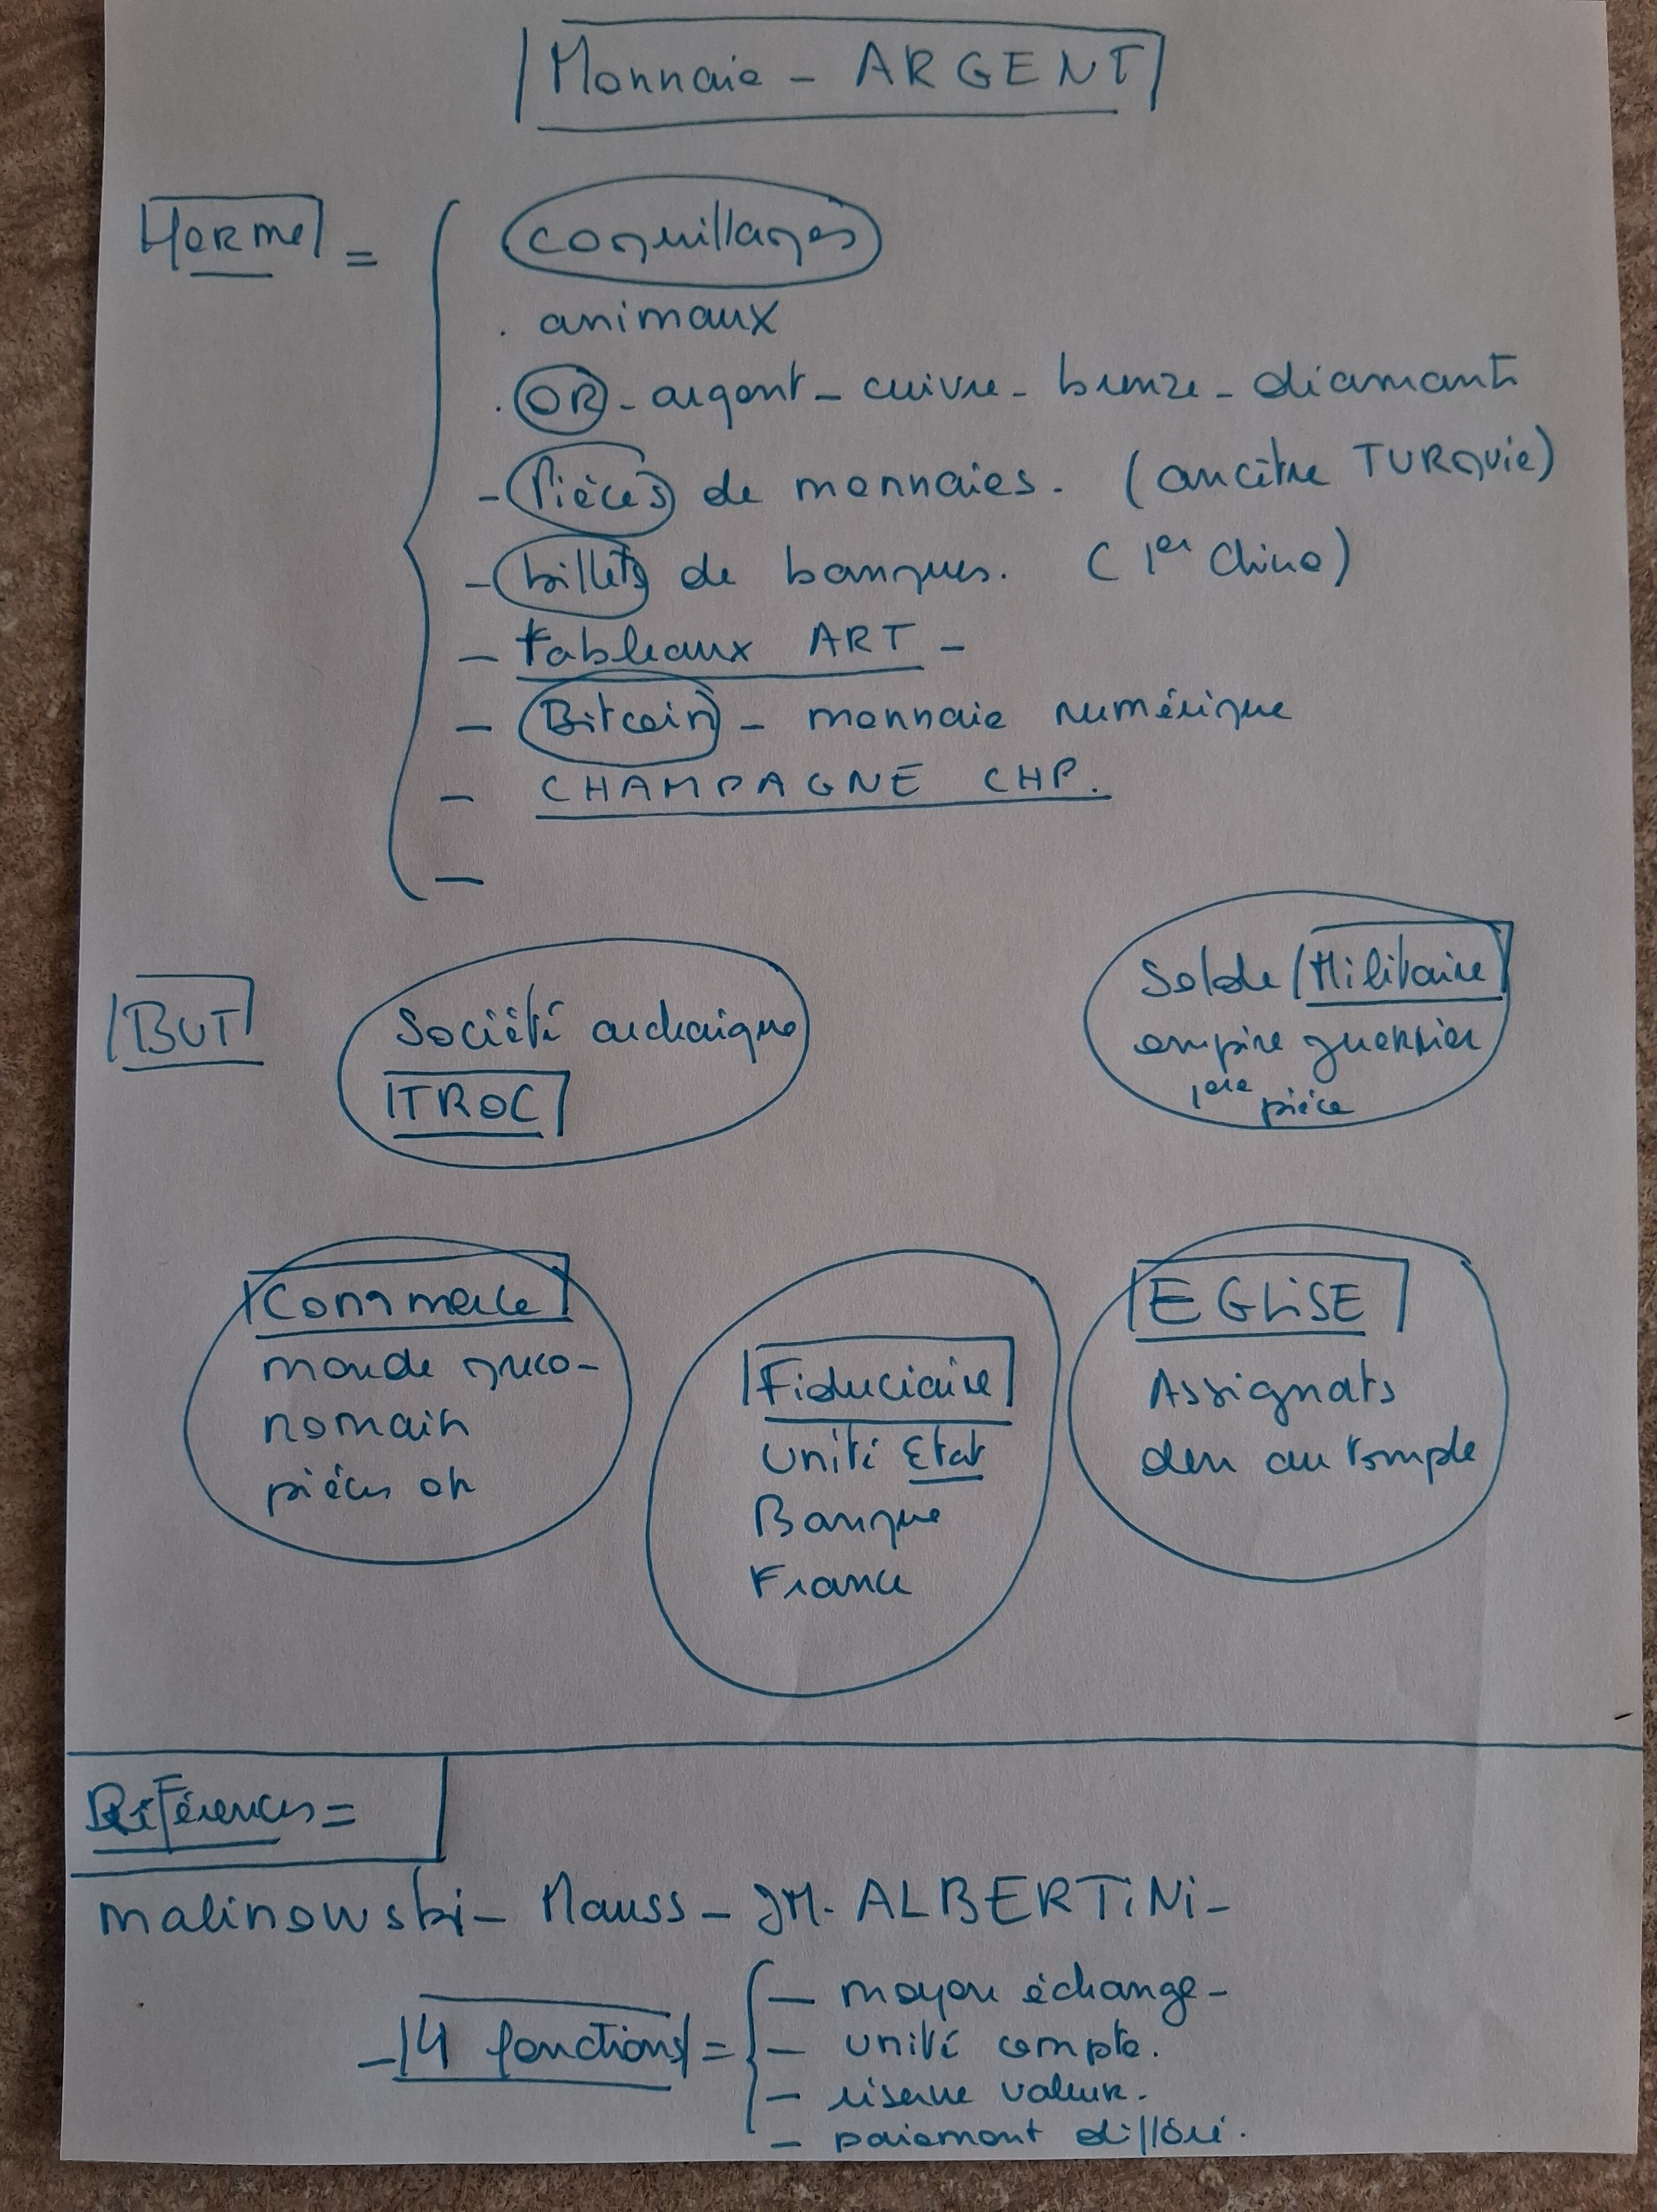 Monnaie - ARGENT
=
coquillages
. animaux
. OR - argent - cuivre - bronze - diamants
- Pièces de monnaies. (ancêtre TURQuie)
- billets de banques. (1er Chine)
- tableaux ART -
- Bitcoin - monnaie numérique
- CHAMPAGNE CHP.
-
BUT
Société archaïque
TROC
Solde Militaire
empire guerrier
1ere pièce
Commerce
monde gréco-
romain
pièces or
Fiduciaire
Unité Etat
Banque
France
EGLiSE
Assignats
au temple
Références =
malinowski - Mauss - JM. ALBERTiNi -
- 4 fonctions =
- moyen échange -
- unité compte.
- réserve valeur.
- paiement différé.